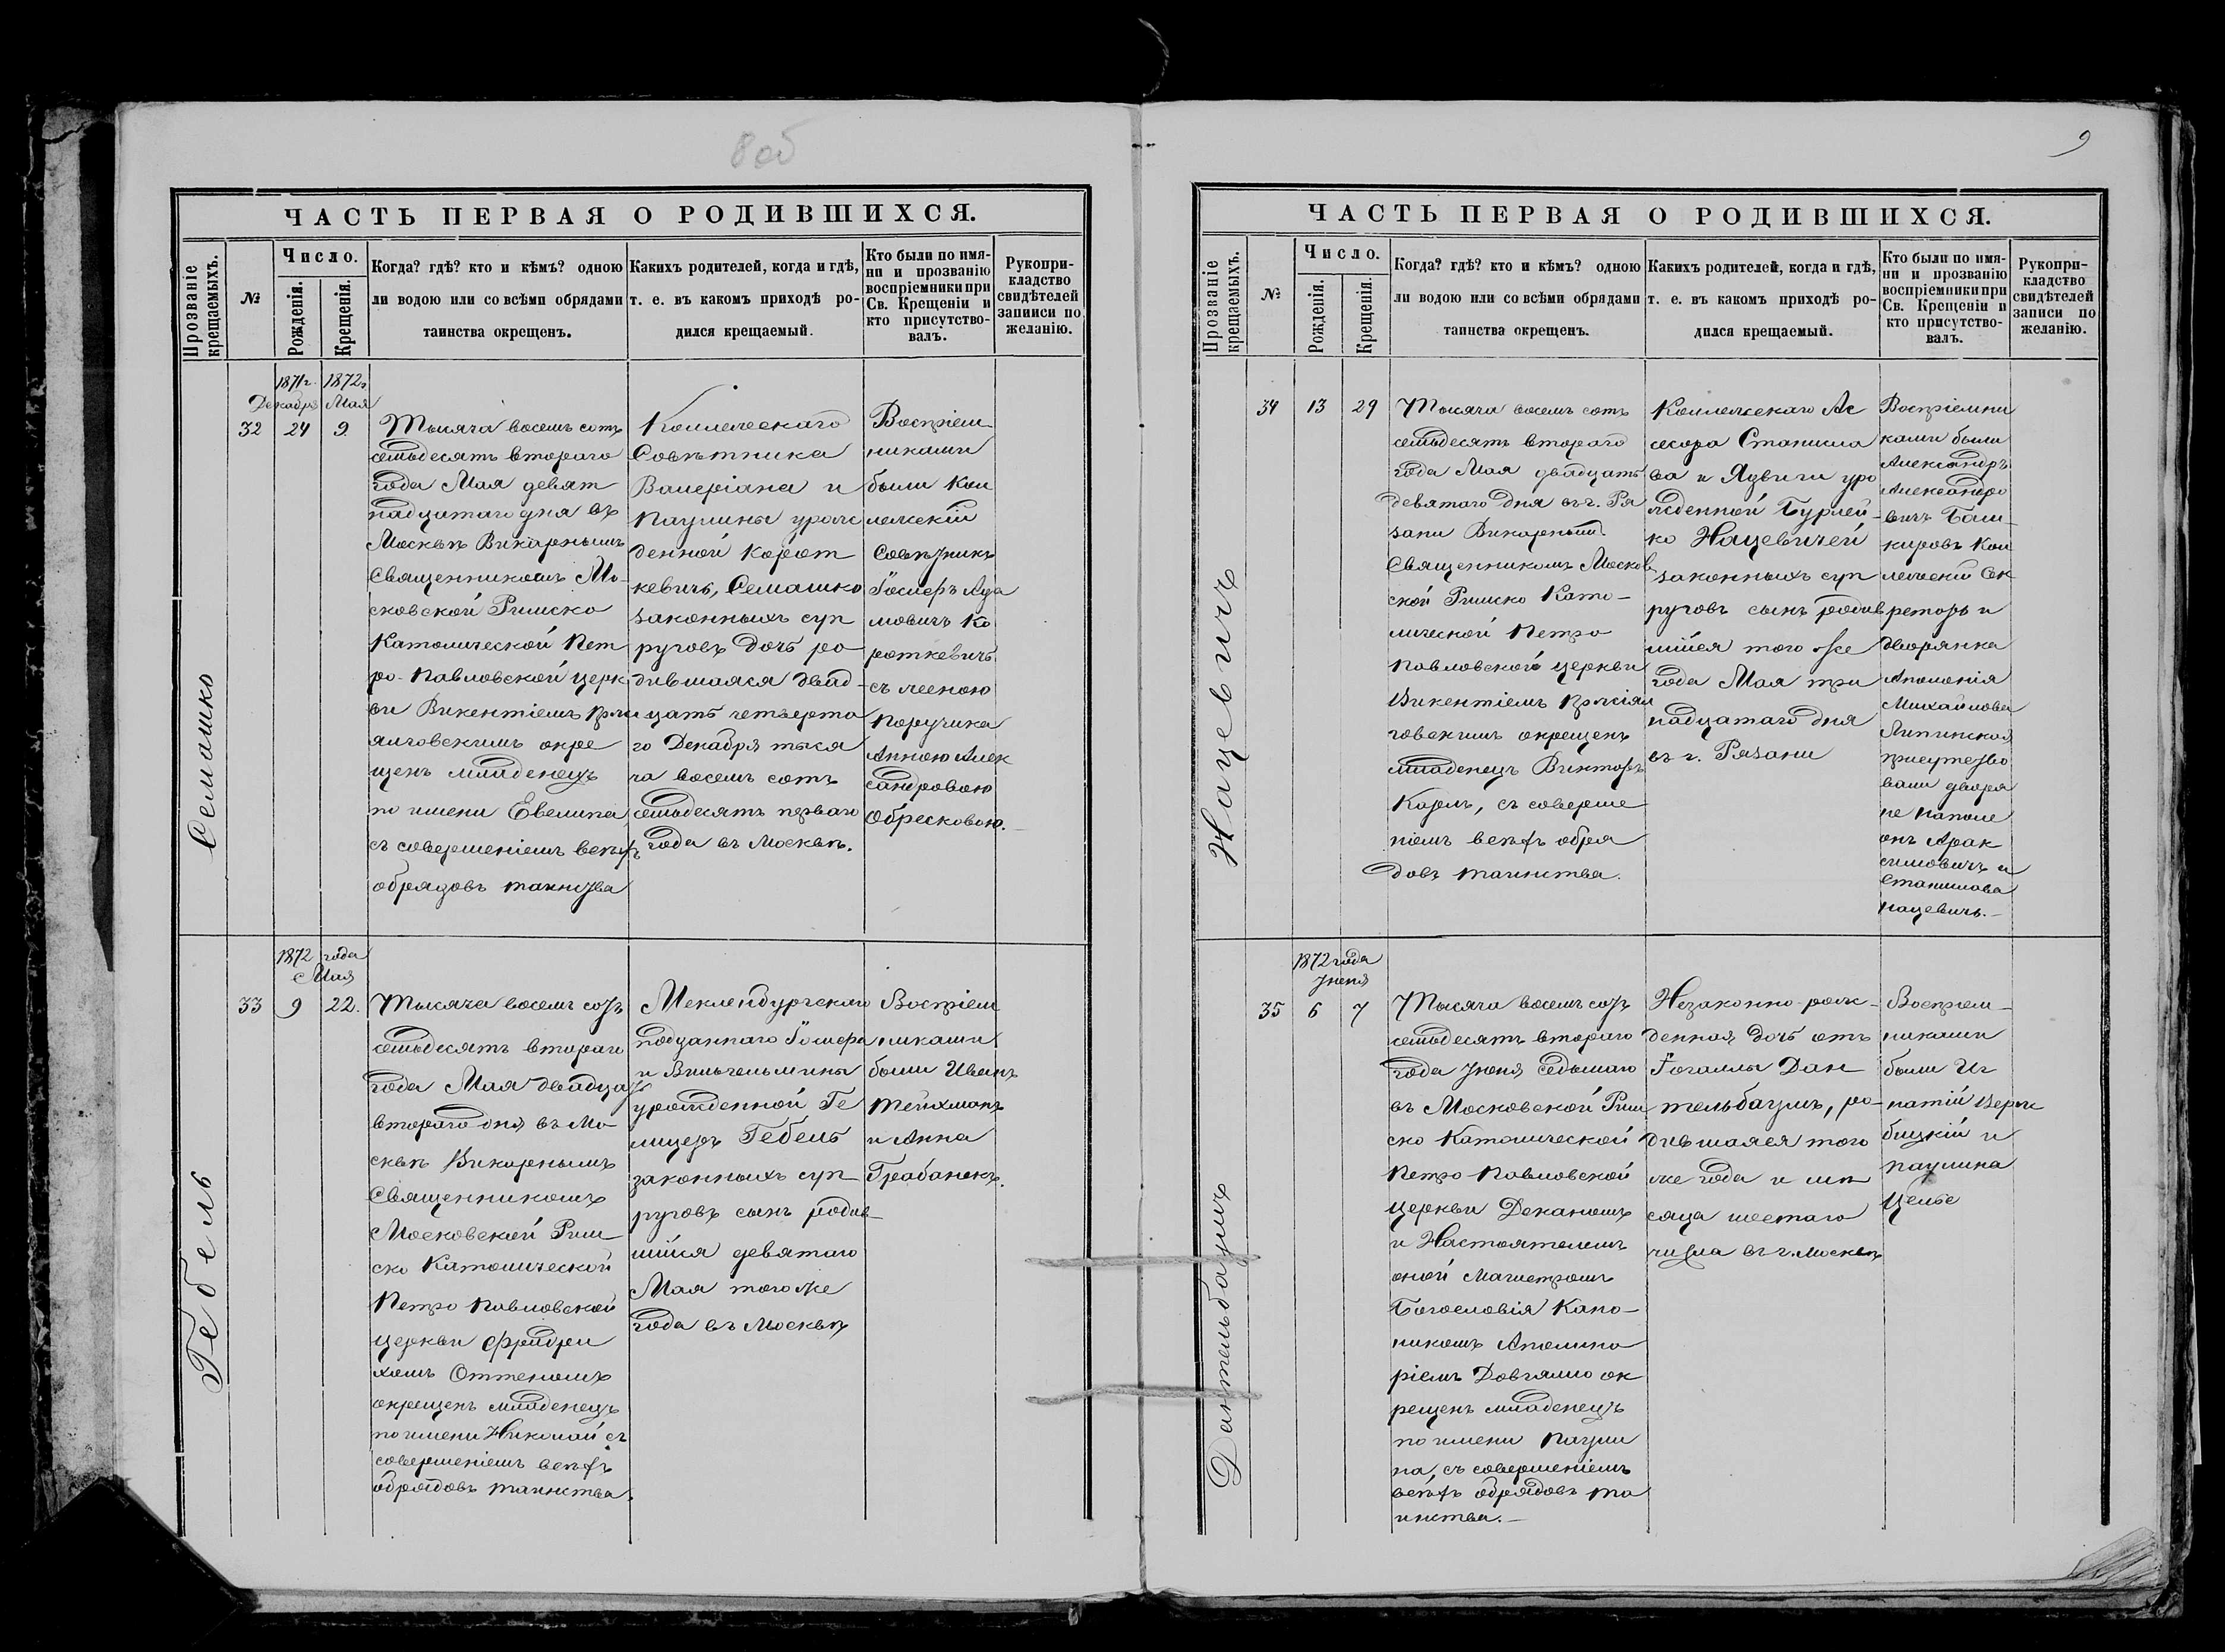 8 об
ЧАСТЬ ПЕРВАЯ О РОДИВШИХСЯ.
Прозваніе крещаемыхъ.
№
Число.
Рожденія.
Крещенія.
Когда? гдѣ? кто и кѣмъ? одною
ли водою или со всѣми обрядами
таинства окрещенъ.
Какихъ родителей, когда и гдѣ,
т. е. въ какомъ приходѣ ро-
дился крещаемый.
Кто были по имя-
ни и прозванію
воспріемники при
Св. Крещеніи и
кто присутство-
валъ.
Рукопри-
кладство
свидѣтелей
записи по
желанію.
Семашко
1871 г. 1872 г.
Декабря Мая
32 24 9.
Тысяча восемь сотъ
семьдесятъ втораго
года Мая девят
надцатаго дня въ
Москвѣ Викарнымъ
Священникомъ Мо-
сковской Римско
Католической Пет
ро-Павловской церк
ви Викентіемъ
окре
щенъ младенецъ
по имени Евелина,
съ совершеніемъ всѣхъ
обрядовъ таинства
Коллежскаго
Совѣтника
Валеріана и
Паулины урож
денной Корот
кевичъ, Семашко
законныхъ суп
руговъ дочь ро
дившаяся двад-
цать четверта
го Декабря тыся
ча восемь сотъ
семьдесятъ перваго
года въ Москвѣ.
Воспріем
никами
были Кол
лежскій
Совѣтникъ
Іосифъ Ада
мовичъ Ко
роткевичъ
съ женою
Поручика
Анною Алек
сандровою
Обресковою.
Гебель
1872 года
Мая
33 9 22.
Тысяча восемь сотъ
семьдесятъ втораго
года Мая двадцать
втораго дня въ Мо
сквѣ Викарнымъ
Священникомъ
Московской Рим
ско Католической
Петро Павловской
церкви Фридри
хомъ Оттеномъ
окрещенъ младенецъ
по имени Николай съ
совершеніемъ всѣхъ
обрядовъ таинства.
Мекленбургскаго
подданнаго Іосифа
и Вильгельмины
урожденной Ге
лицеръ Гебель
законныхъ суп
руговъ сынъ родив-
шійся девятаго
Мая того же
года въ Москвѣ
Воспріем
никами
были Иванъ
Тейхманъ
и Анна
Грабанекъ.
9
ЧАСТЬ ПЕРВАЯ О РОДИВШИХСЯ.
Прозваніе крещаемыхъ.
№
Число.
Рожденія.
Крещенія.
Когда? гдѣ? кто и кѣмъ? одною
ли водою или со всѣми обрядами
таинства окрещенъ.
Какихъ родителей, когда и гдѣ,
т. е. въ какомъ приходѣ ро-
дился крещаемый.
Кто были по имя-
ни и прозванію
воспріемники при
Св. Крещеніи и
кто присутство-
валъ.
Рукопри-
кладство
свидѣтелей
записи по
желанію.
Нацевичъ
34 13 29
Тысяча восемь сотъ
семьдесятъ втораго
года Мая двадцать
девятаго дня въ г. Ря
зани Викарный
Священникомъ Москов
ской Римско Като-
лической Петро
Павловской церкви
Викентіемъ
окрещенъ
младенецъ Викторъ
Карлъ, съ соверше
ніемъ всѣхъ обря
довъ таинства.
Коллежскаго Ас
сесора Станисла
ва и Ядвиги уро
жденной Бурлей-
ко Нацевичей
законныхъ суп
руговъ сынъ родив
шійся того же
года Мая три
надцатаго дня
въ г. Рязани
Воспріемни
ками были
Александръ
Александро
вичъ Баш-
кировъ Кол
лежскій Сек
ретарь и
дворянка
Аполонія
Михайлова
Липинская
присутство
вали дворя
не Наполе
онъ Арак
симовичъ и
Станислава
Нацевичъ.-
Дантельбаумъ
1872 года
Іюня
35 6 7
Тысяча восемь сотъ
семьдесятъ втораго
года Іюня седьмаго
въ Московской Рим
ско Католической
Петро-Павловской
церкви Деканомъ
и Настоятелемъ
оной Магистромъ
Богословія Кано-
никомъ Аполина
ріемъ Довгялло ок
рещенъ младенецъ
по имени Паули
на, съ совершеніемъ
всѣхъ обрядовъ та
инства.-
Незаконно-рож-
денная дочь отъ
Рогаллы Дан
тельбаумъ, ро-
дившаяся того
же года и мѣ
сяца шестаго
числа въ г. Москвѣ
Воспріем-
никами
были Иг
натій Верж
бицкій и
Паулина
Целье